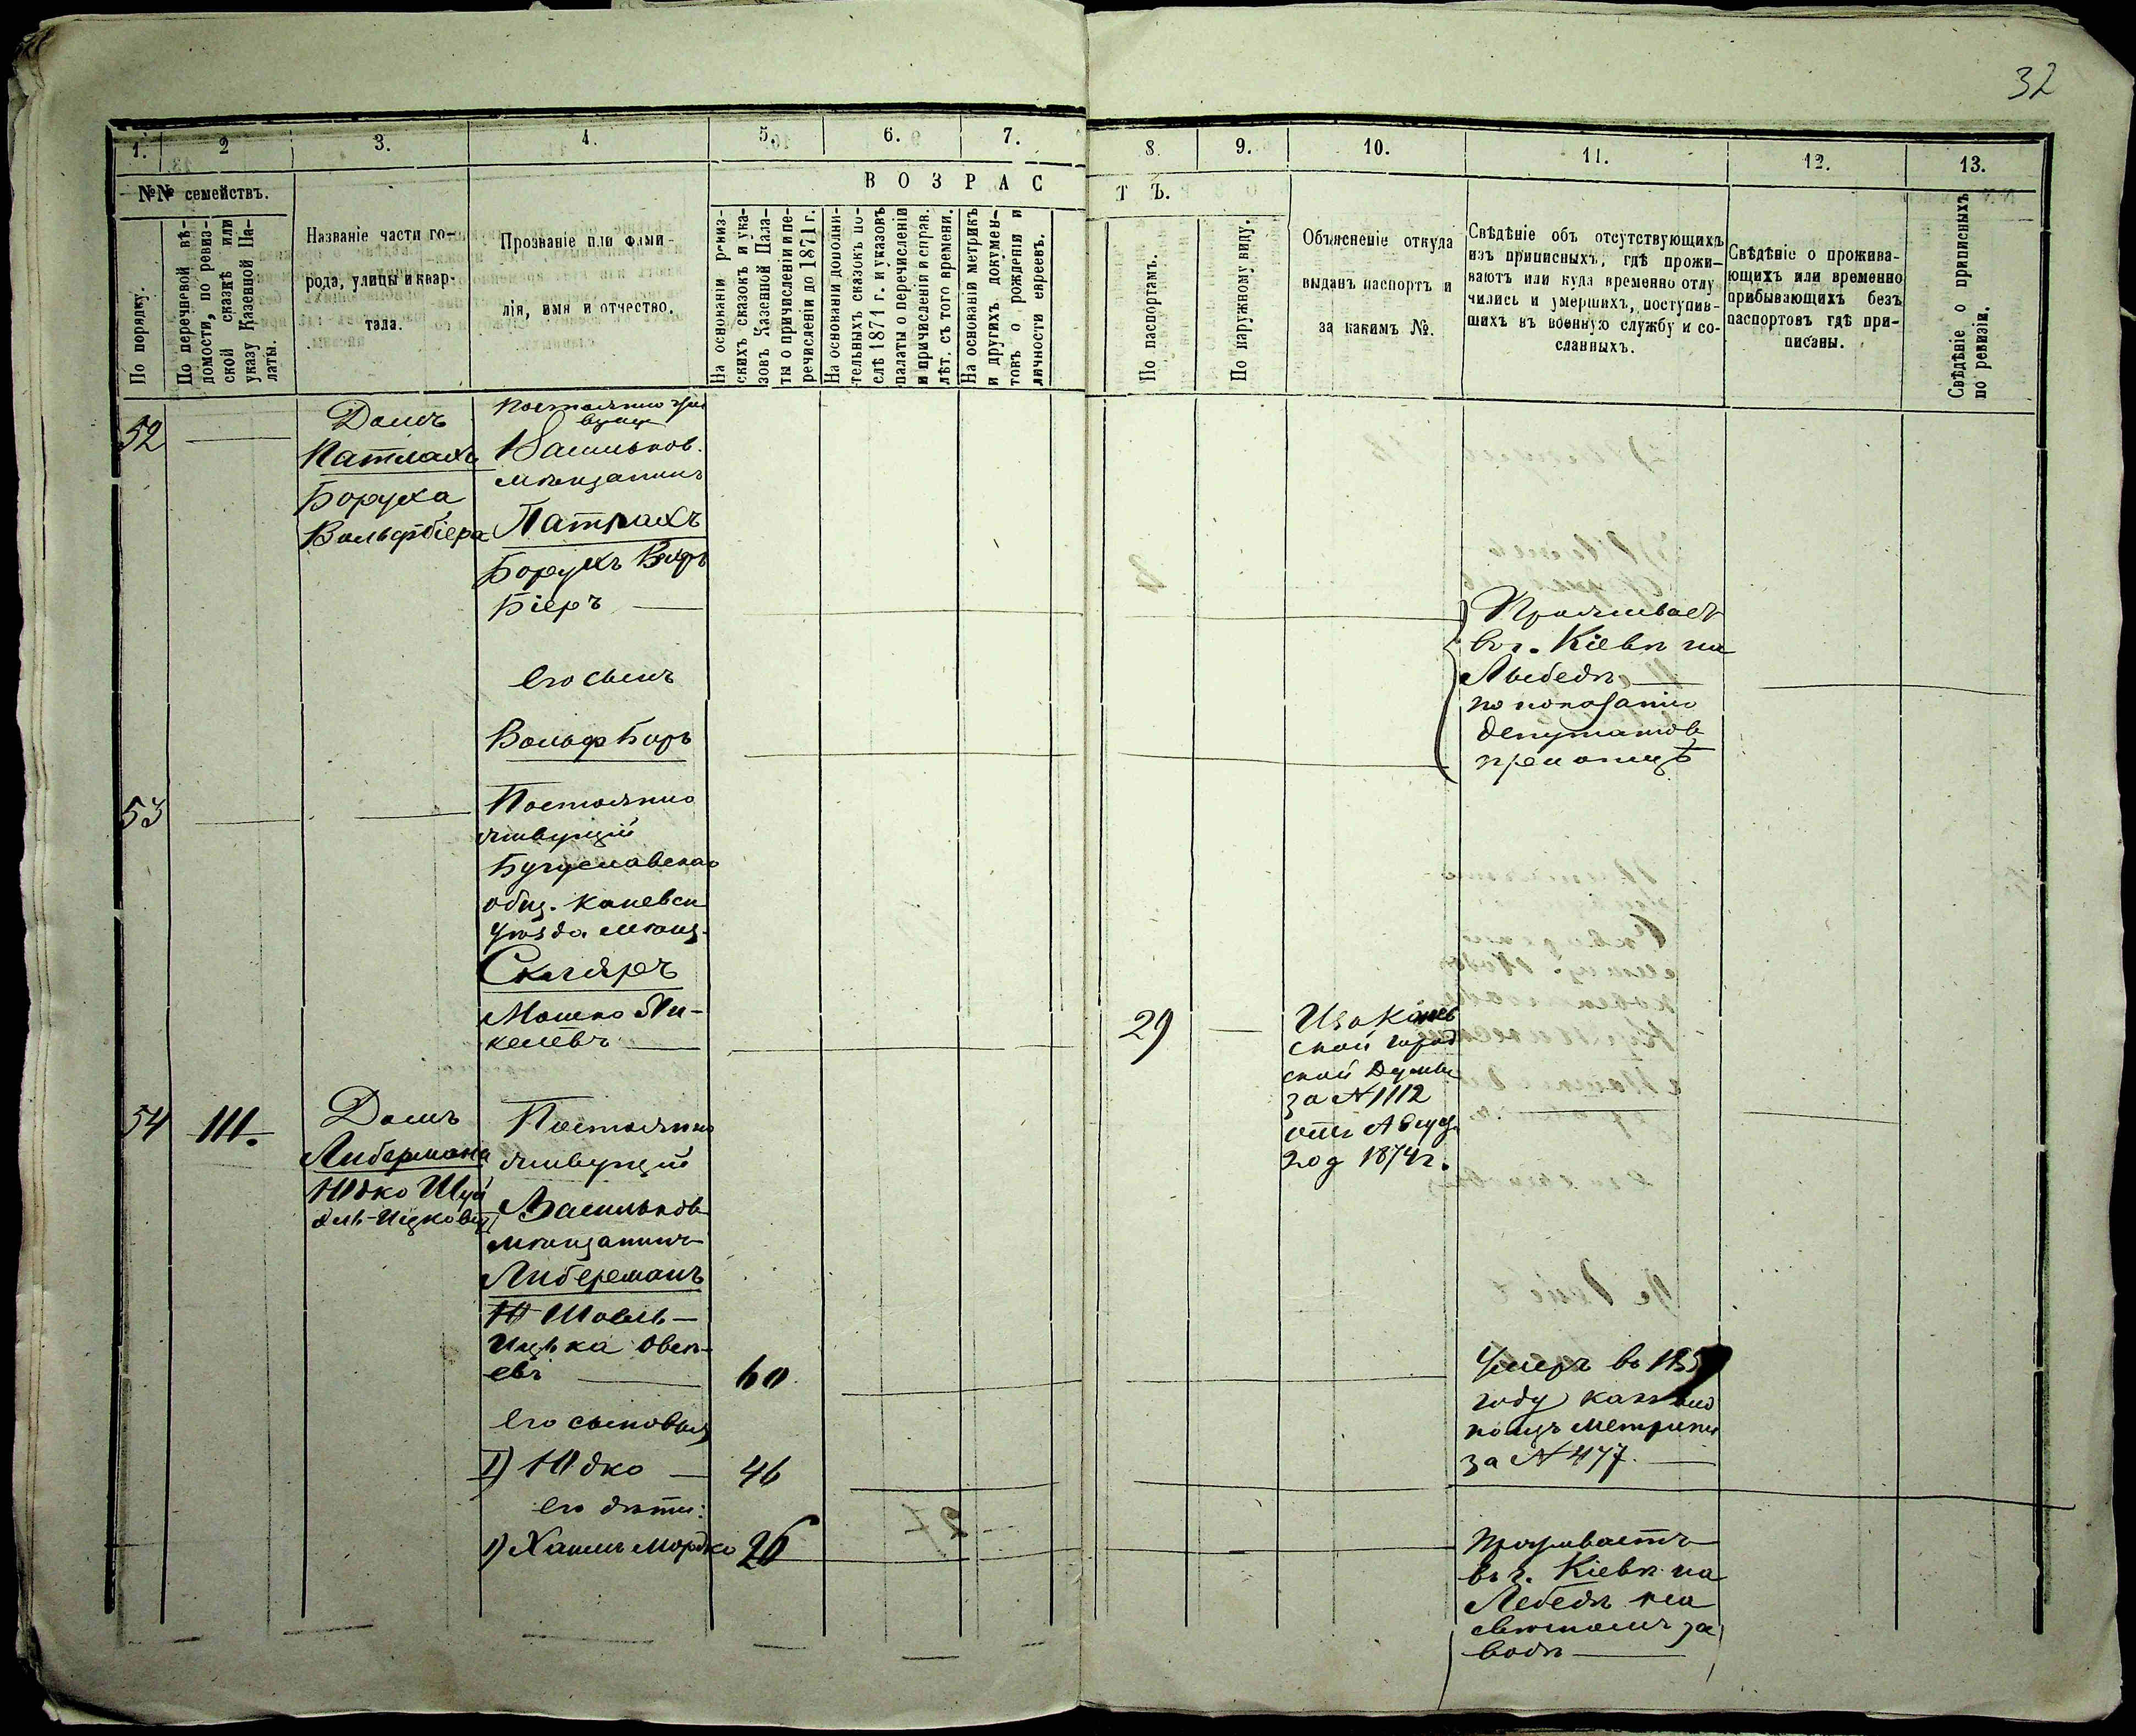 32
1.
2
3.
4.
5.
6.
7.
8.
9.
10.
11.
12.
13.
№№ семействъ.
По порядку.
По перечневой вѣ-
домости, по ревиз-
ской сказкѣ или
указу Казенной Па-
латы.
Названіе части го-
рода, улицы и квар-
тала.
Прозваніе или фами-
лія, имя и отчество.
ВОЗРАС
На основаніи ревиз-
скихъ сказокъ и ука-
зовъ Казенной Пала-
ты о причисленіи и пе-
речисленіи до 1871 г.
На основаніи дополни-
тельныхъ сказокъ по-
слѣ 1871 г. и указовъ
палаты о перечисленіи
и причисленія и справ.
лѣт. съ того времени.
На основаніи метрикъ
и другихъ докумен-
товъ о рожденіи и
личности евреевъ.
ТЪ.
По паспортамъ.
По наружному виду.
Объясненіе откуда
выданъ паспортъ и
за какимъ №.
Свѣдѣніе объ отсутствующихъ
изъ приписныхъ, гдѣ прожи-
ваютъ или куда временно отлу
чились и умершихъ, поступив-
шихъ въ военную службу и со-
сланныхъ.
Свѣдѣніе о прожива-
ющихъ или временно
прибывающихъ безъ
паспортовъ гдѣ при-
писаны.
Свѣдѣніе о приписныхъ
по ревизіи.
52
Домъ
Патлахъ
Боруха
Вольфбіера
Постоянно жи
вущи
Васильков.
мѣщанинъ
Патрахъ
Борухъ
Біеръ
его сынъ
Вольф Боръ
Проживаетъ
въ г. Кіевѣ на
Лыбедѣ
по показанію
депутатовъ
53
Постоянно
живущій
Бугуславскаго
общ. Каневск
уѣзда мѣщ.
Скляръ
Мошко Ли-
келевъ
29
Изъ Канев
ской город
ской Думы
за №1112
отъ Авгус.
год 1874 г.
54
111.
Домъ
Либермана
Юдко Шуа
Ицкови
Постоянно
живущій
Васильков
мѣщанинъ
Либерманъ
Шовель-
Ицька Овсѣ-
евъ
60
Умеръ въ 185
году
метрики
за № 477.
его сыновья
1) Юдко
46
его дѣти:
1) Хаимъ Мордко
26
Проживаетъ
въ г. Кіевѣ на
Лебедѣ на
свѣтномъ за
водѣ